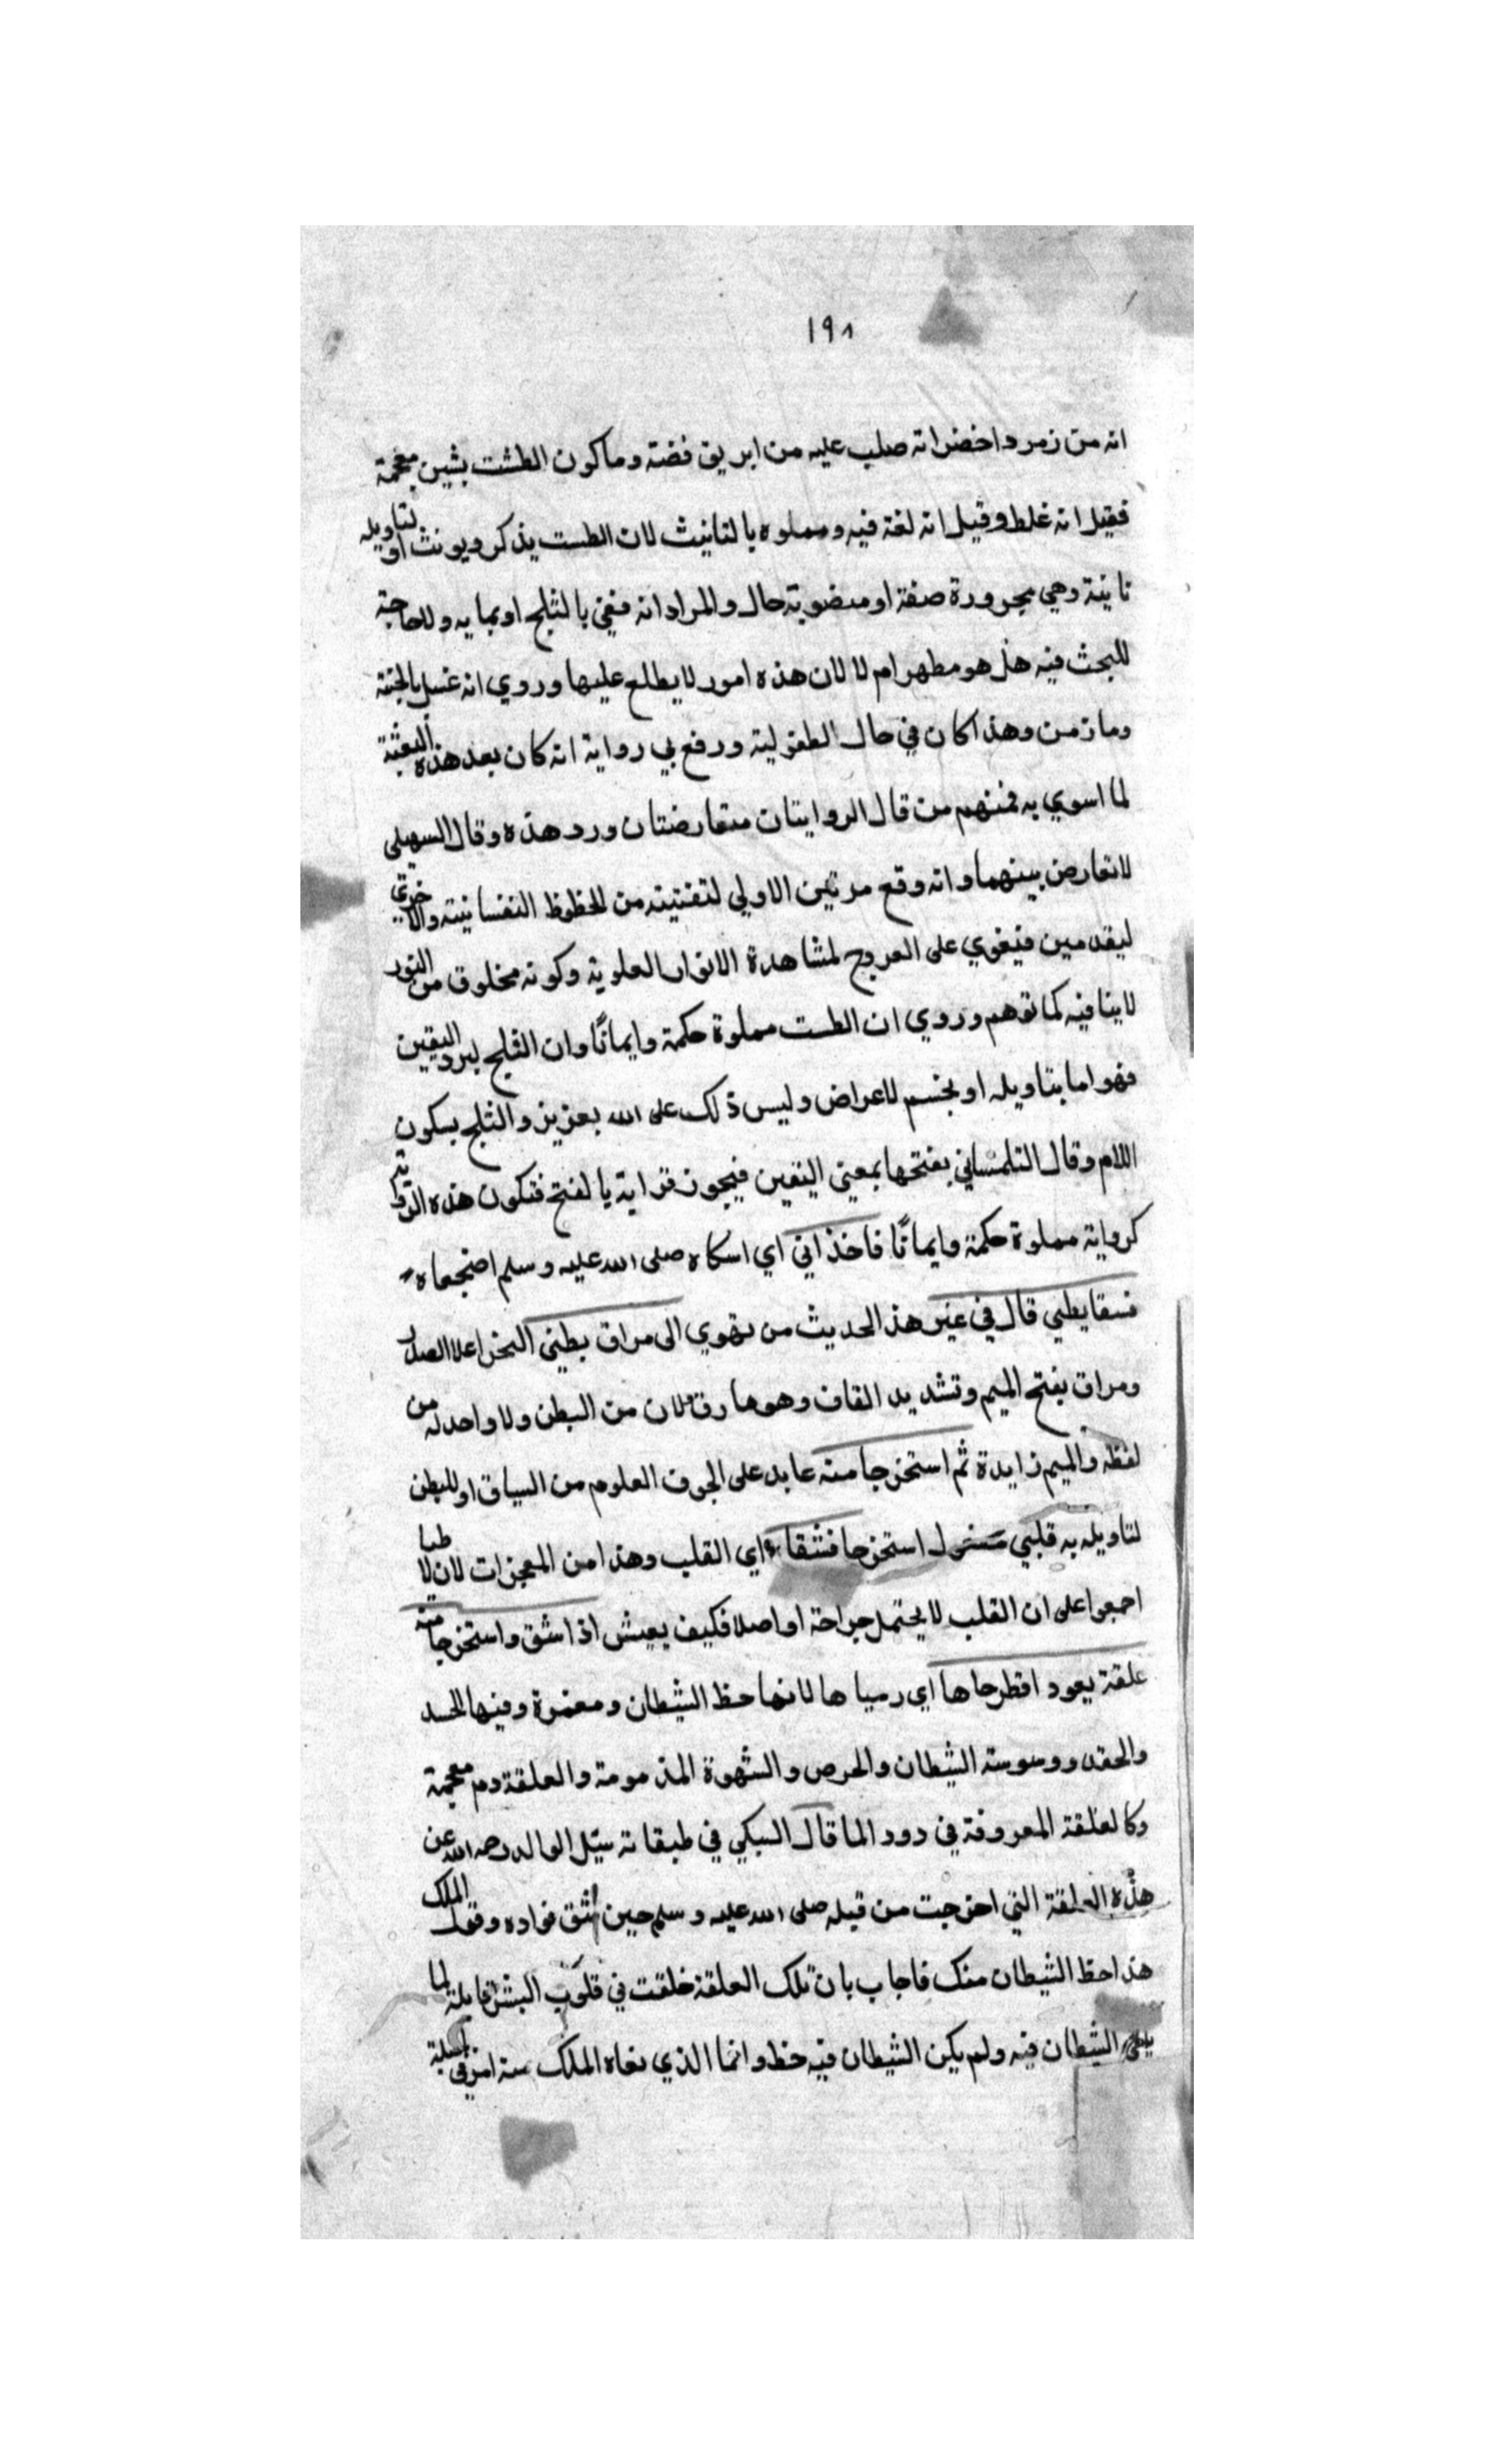 ١٩٨
انه من زمرد اخضر انه صلب عليه من ابريق فضة وما كون الطشت بشين معجمة
فقيل انه غلط وقيل انه لغة فيه ومملوه بالتانيث لان الطست يذكر ويونث او لتاويله
نانية وهي مجرورة صفة او منصوبة حال والمراد انه منغي بالثلج او بمايه ولا حاجة
للبحث فيه هل هو مطهر ام لا لان هذه امور لا يطلع عليها وروي انه غسل بالجنة
وما زمن وهذا كان في حال الطفولية ورفع بي رواية انه كان بعد هذه البعثة
لما اسوي به فمنهم من قال الروايتان متعارضتان ورد هذه وقال السهيلى
لا تعارض بينهما وانه وقع مرتين الاولي لتفتيته من الحظوظ النفسانية والاخرى
ليقدمين فيقوي على العروج لمشاهدة الانوار العلوية وكونه مخلوق من النور
لا ينافيه كما توهم وروي ان الطست مملوة حكمة وايمانًا وان الثلج لبرد اليقين
فهو اما بتاويله او بجسم للاعراض وليس ذلك على الله بعزيز والثلج بسكون
اللام وقال التلمساني بفتحها بمعنى اليقين فيجوز قراية بالفتح فتكون هذه الرواية
كرواية مملوة حكمة وايمانًا فاخذاني اي اسكاه صلى الله عليه وسلم اضجعاه
فسقا بطني قال في غير هذ الحديث من نهوي الى مراق بطني النحر اعلا الصدر
ومراق بفتح الميم وتشديد القاف وهو ما رق ولان من البطن ولا واحد له من
لفظه والميم زايدة ثم استخرجا منه عايد على الجوف العلوم من السياق او للبطن
لتاويله به قلبي مفعول استخرجا فشقاه اي القلب وهذا من المعجزات لان لا طبا
اجمعوا على ان القلب لا يحتمل جراحة او اصلا فكيف يعيش اذا شق واستخرجا منه
علقة يعود اقطرحاها اي رمياها لانها حظ الشيطان ومغمزة وفيها الحسد
والحقد ووسوسة الشيطان والحرص والشهوة المذمومة والعلقة دم معجمة
وكالعلقة المعروفة في دود الما قال السبكي في طبقاته سيل الوالد رحمه الله عن
هذه العلقة التي اخرجت من قبله صلى الله عليه وسلم حين شق فواده وقول الملك
هذا حظ الشيطان منك فاجاب بان تلك العلقة خلقت في قلوب البشر قابلة لما
يلقي الشيطان فيه ولم يكن الشيطان فيه حظ وانما الذي نفاه الملك منه امر في